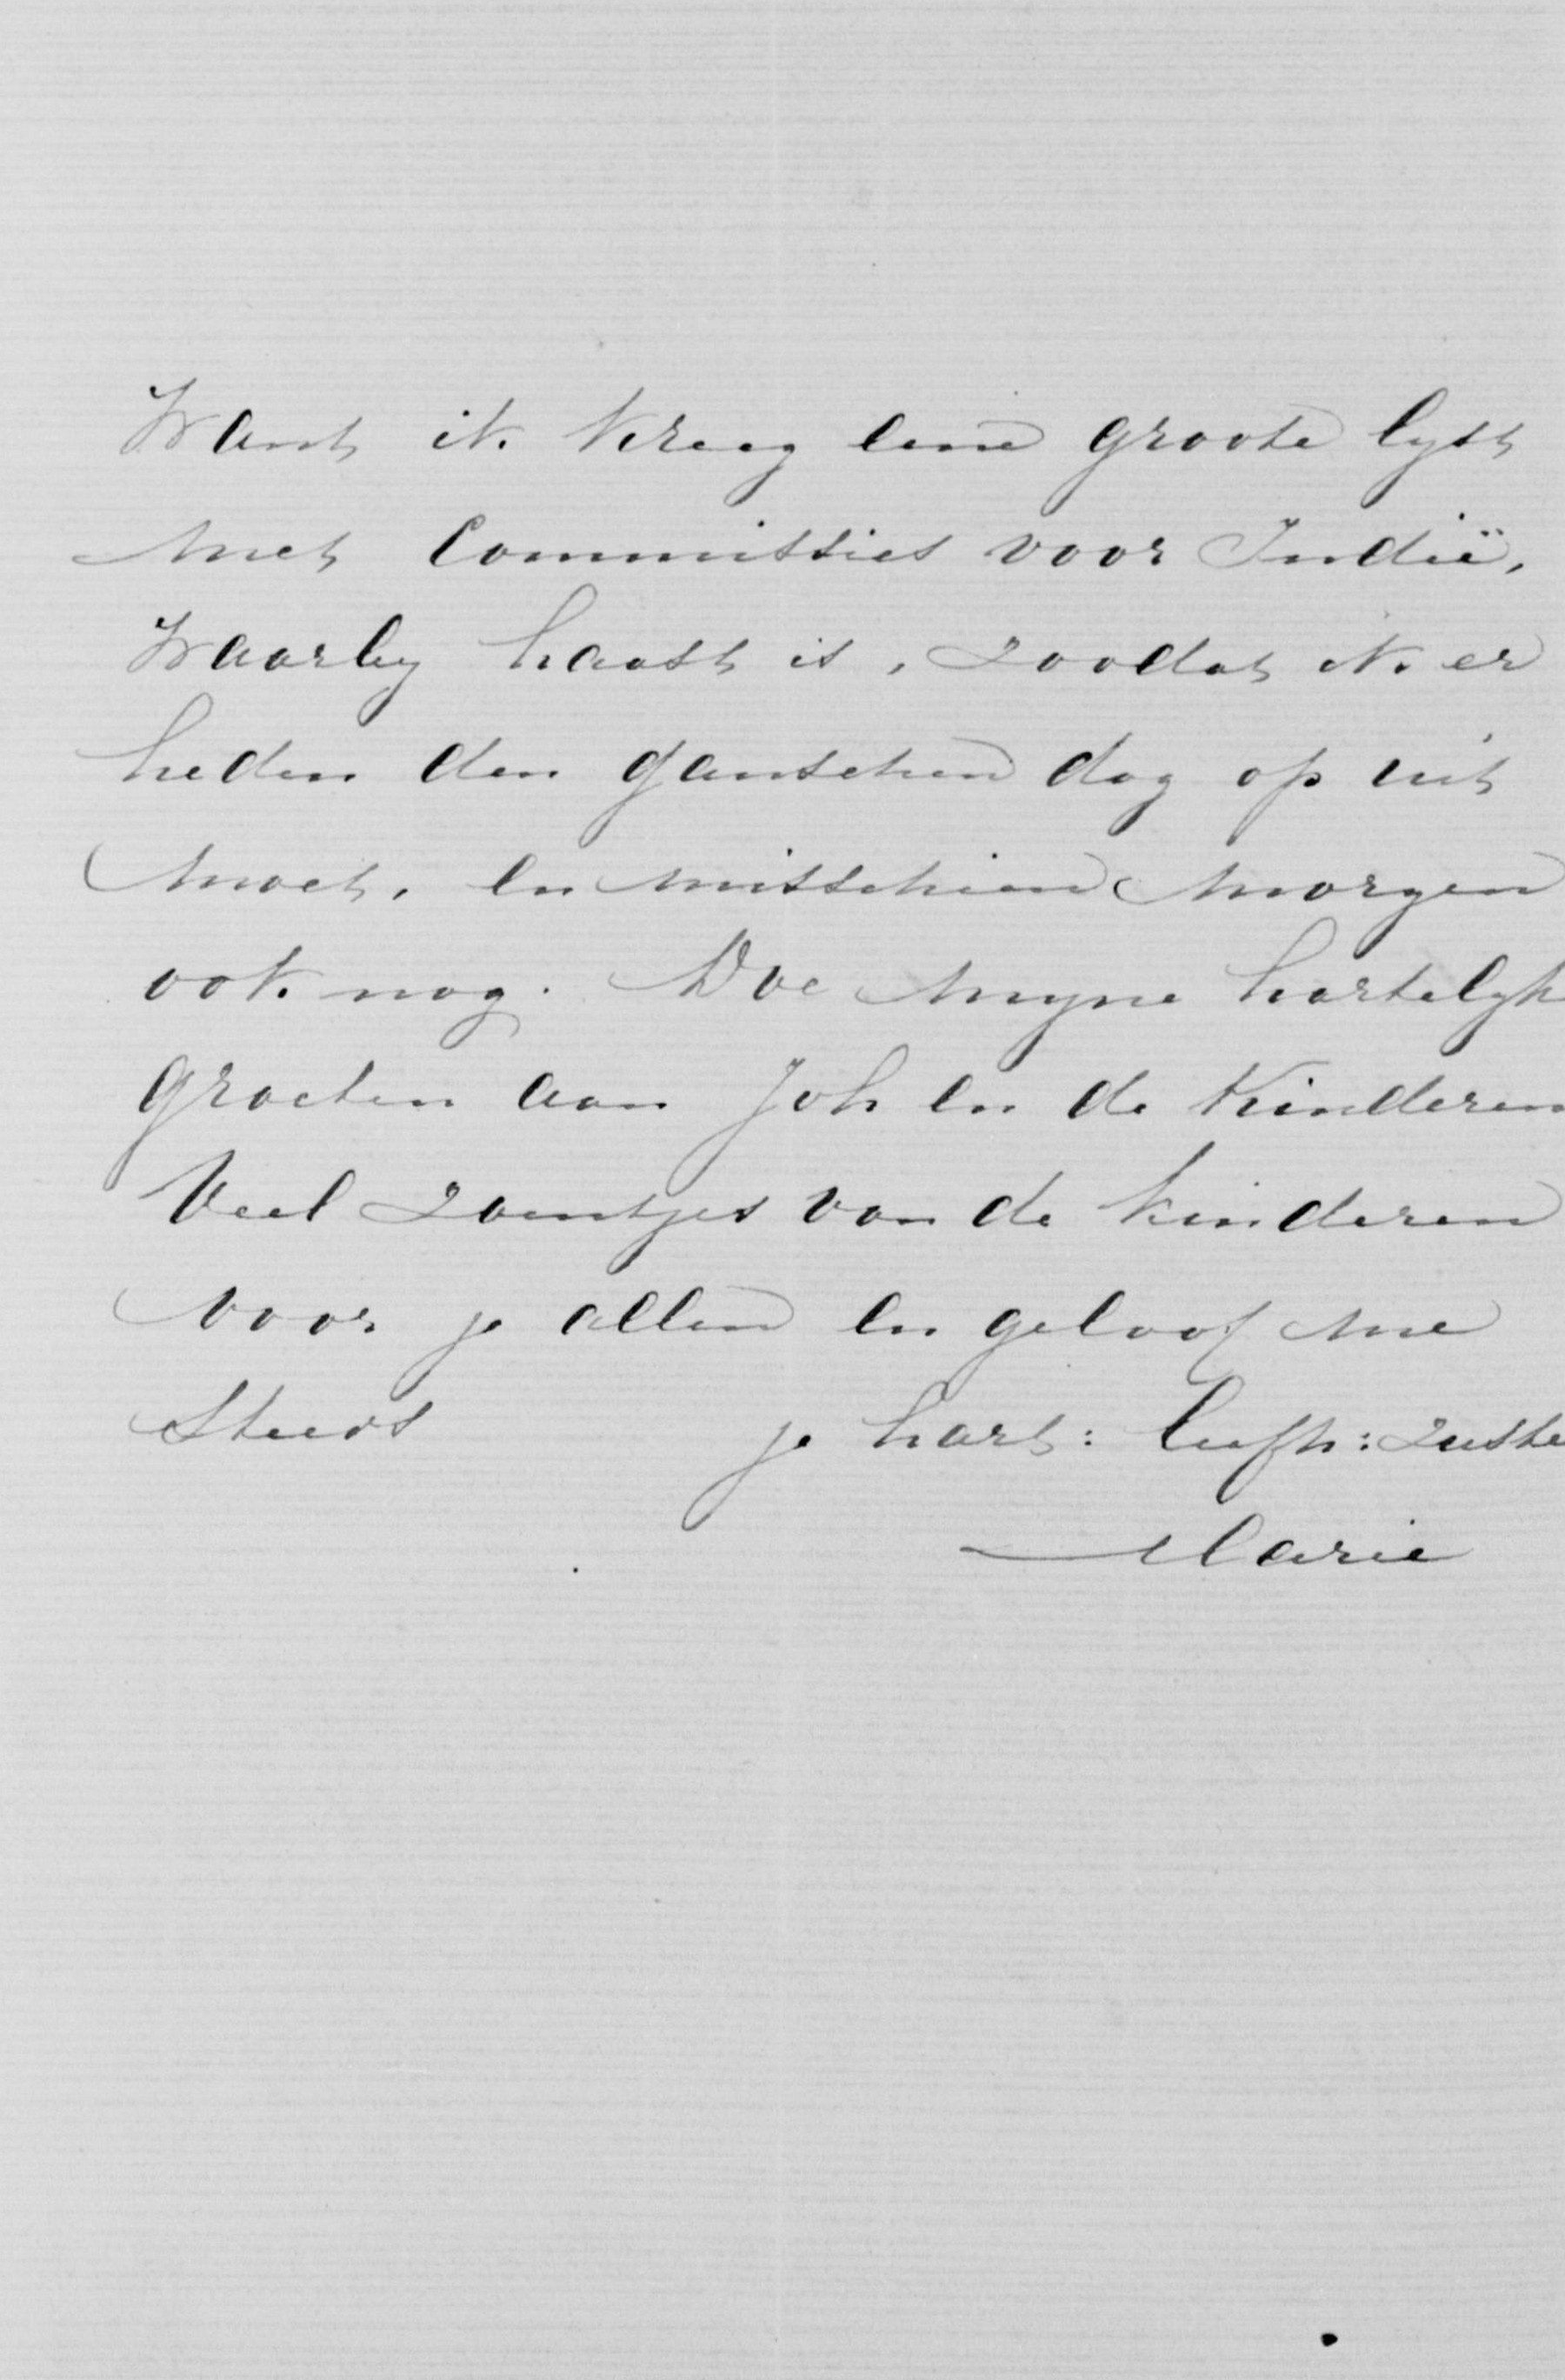 Want ik kreeg eene groote lyst
met Commissies voor Indië,
Waarby haast is, zoodat ik er
heden den ganschen dag op uit
moet, en misschien morgen
ook nog. Doe myne hartelyk
groeten aan Joh en de Kinderen
Veel zoentjes van de kinderen
voor je allen en geloof me
Steeds je hart: liefh: zuste
Marie